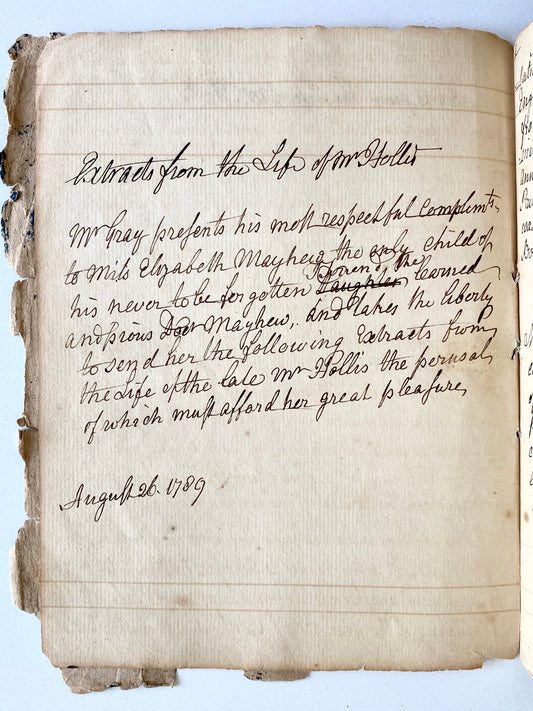 Extracts from the Life of Mr Hollis
Mr Gray presents his most respectful Complimts.
to Miss Elizabeth Mayhew the only child of
his never to be forgotten Daughter Friend the learned
and pious Doct Mayhew, and takes the liberty
to send her the following Extracts from
the Life of the late Mr Hollis the perusal
of which must afford her great pleasure
August 26. 1789